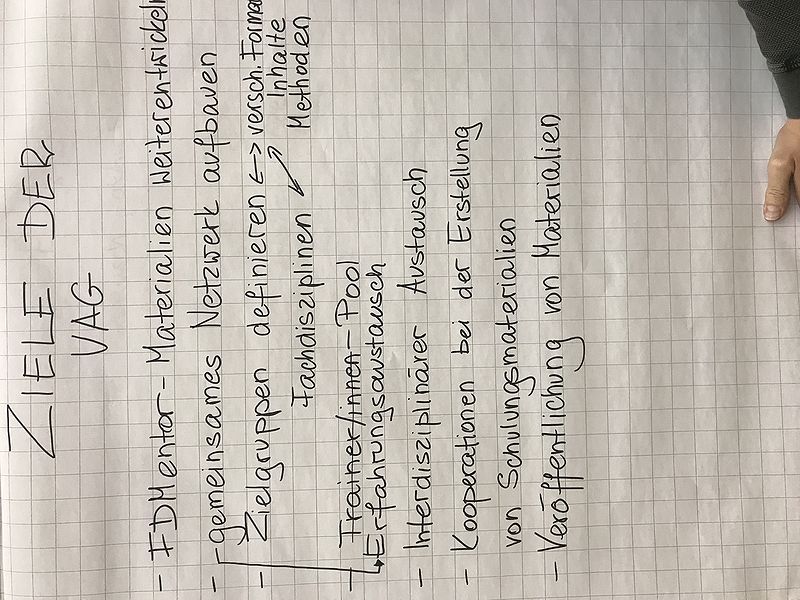 ZIELE DER
VAG
- FDMentor-Materialien weiterentwickeln
- gemeinsames Netzwerk aufbauen
- Zielgruppen definieren <-> versch. Format
Inhalte
Fachdisziplinen ↔ Methoden
- Trainer/innen-Pool
Erfahrungsaustausch
- Interdisziplinärer Austausch
- Kooperationen bei der Erstellung
von Schulungsmaterialien
- Veröffentlichung von Materialien